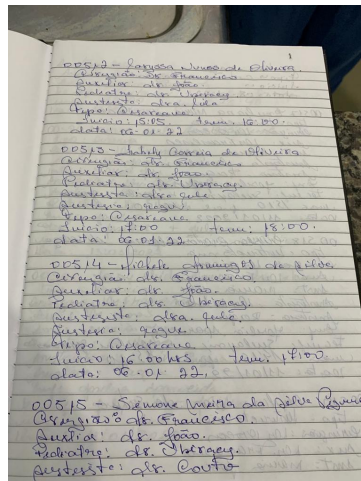 1
00512 - Laryssa Nunes de Oliveira
Cirurgião: dr. Francisco.
Auxiliar: dr. João.
Pediatra: dr. Uberacy.
Anestesista: dra.
Tipo: Cesariana
Início: 15:05 term. 16:00.
data: 06.01.22
00513 - Correia de Oliveira
Cirurgião: dr. Francisco
Auxiliar: dr. João.
Pediatra: dr. Uberacy.
Anestesista: dra.
Anestesia:
Tipo: Cesariana
Início: 17:00 term: 18:00.
data: 06-01-22
00514 - Michele da Silva
Cirurgião: dr. Francisco.
Auxiliar: dr. João.
Pediatra: dr. Uberacy.
Anestesista: dra.
Anestesia:
Tipo: Cesariana
Início: 16:00hrs term. 17:00
data: 06-01-22.
00515 - Simone Meira da Silva
Cirurgião: dr. Francisco.
Auxiliar: dr. João.
Pediatra: dr. Uberacy.
Anestesista: dr. Couto